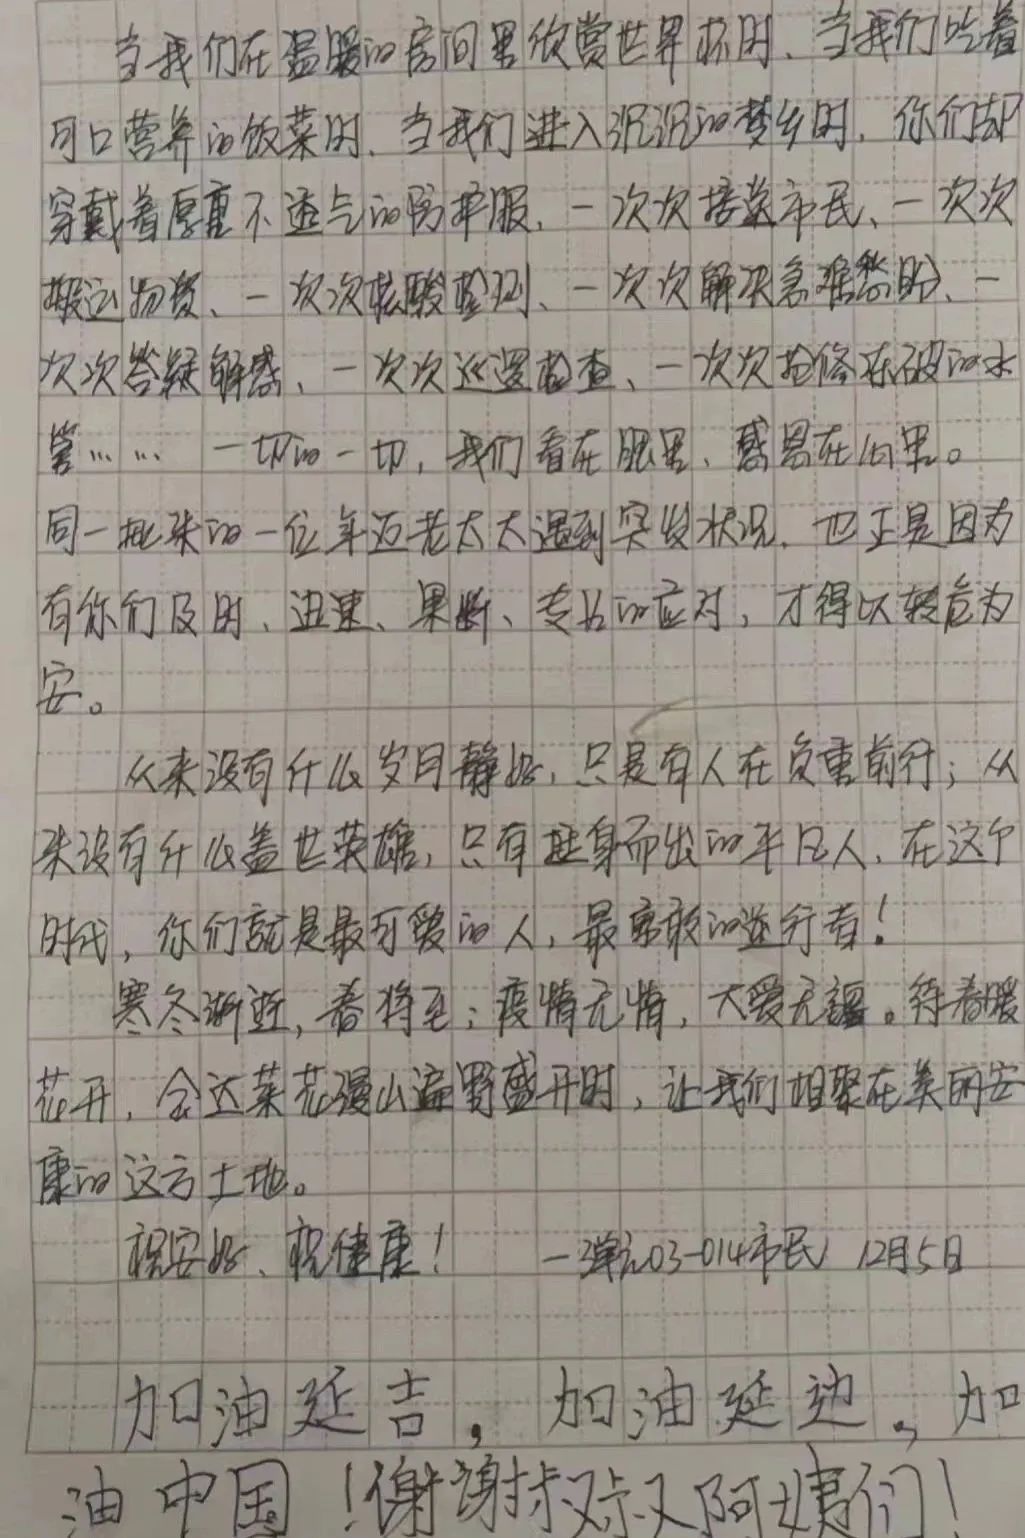 当我们在温暖的房间里欣赏世界杯时、当我们吃着
可口营养的饭菜时、当我们进入沉沉的梦乡时，你们却
穿戴着厚重不透气的防护服、一次次接送市民、一次次
搬运物资、一次次核酸检测、一次次解决急难愁盼、一
次次答疑解惑、一次次巡逻检查、一次次抢修冻破的水
管…… 一切的一切，我们看在眼里、感恩在心里。
同一批来的一位年迈老太太遇到突发状况，也正是因为
有你们及时、迅速、果断、专业的应对，才得以转危为
安。
从来没有什么岁月静好，只是有人在负重前行；从
来没有什么盖世英雄，只有挺身而出的平凡人，在这个
时代，你们就是最可爱的人，最勇敢的逆行者！
寒冬渐逝，春将至；疫情无情，大爱无疆。待春暖
花开，金达莱花漫山遍野盛开时，让我们相聚在美丽安
康的这方土地。
祝安好、祝健康！ 一单元03-014市民 12月5日
加油延吉，加油延边，加
油中国！谢谢叔叔阿姨们！